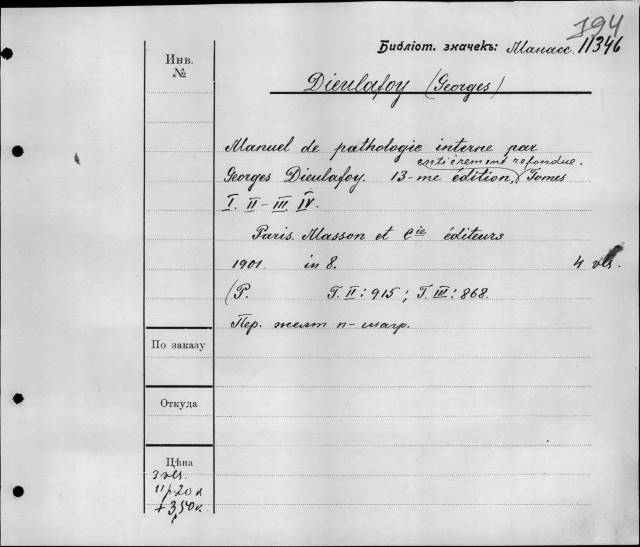 194
Библіот. значекъ: Манасс. 11346
Инв.
№
Dieulafoy (Georges)
Manuel de pathologie interne par
entièrement refondue.
Georges Dieulafoy. 13-me édition, Tomes
I. II–III. IV.
Paris. Masson et Cie éditeurs
1901. in 8. 4 vls.
(P. T. II: 915; T. III: 868.
Пер. желт п-шагр.
По заказу
Откуда
Цѣна
3 vls
11 р 20 к
+ 3,50 к.